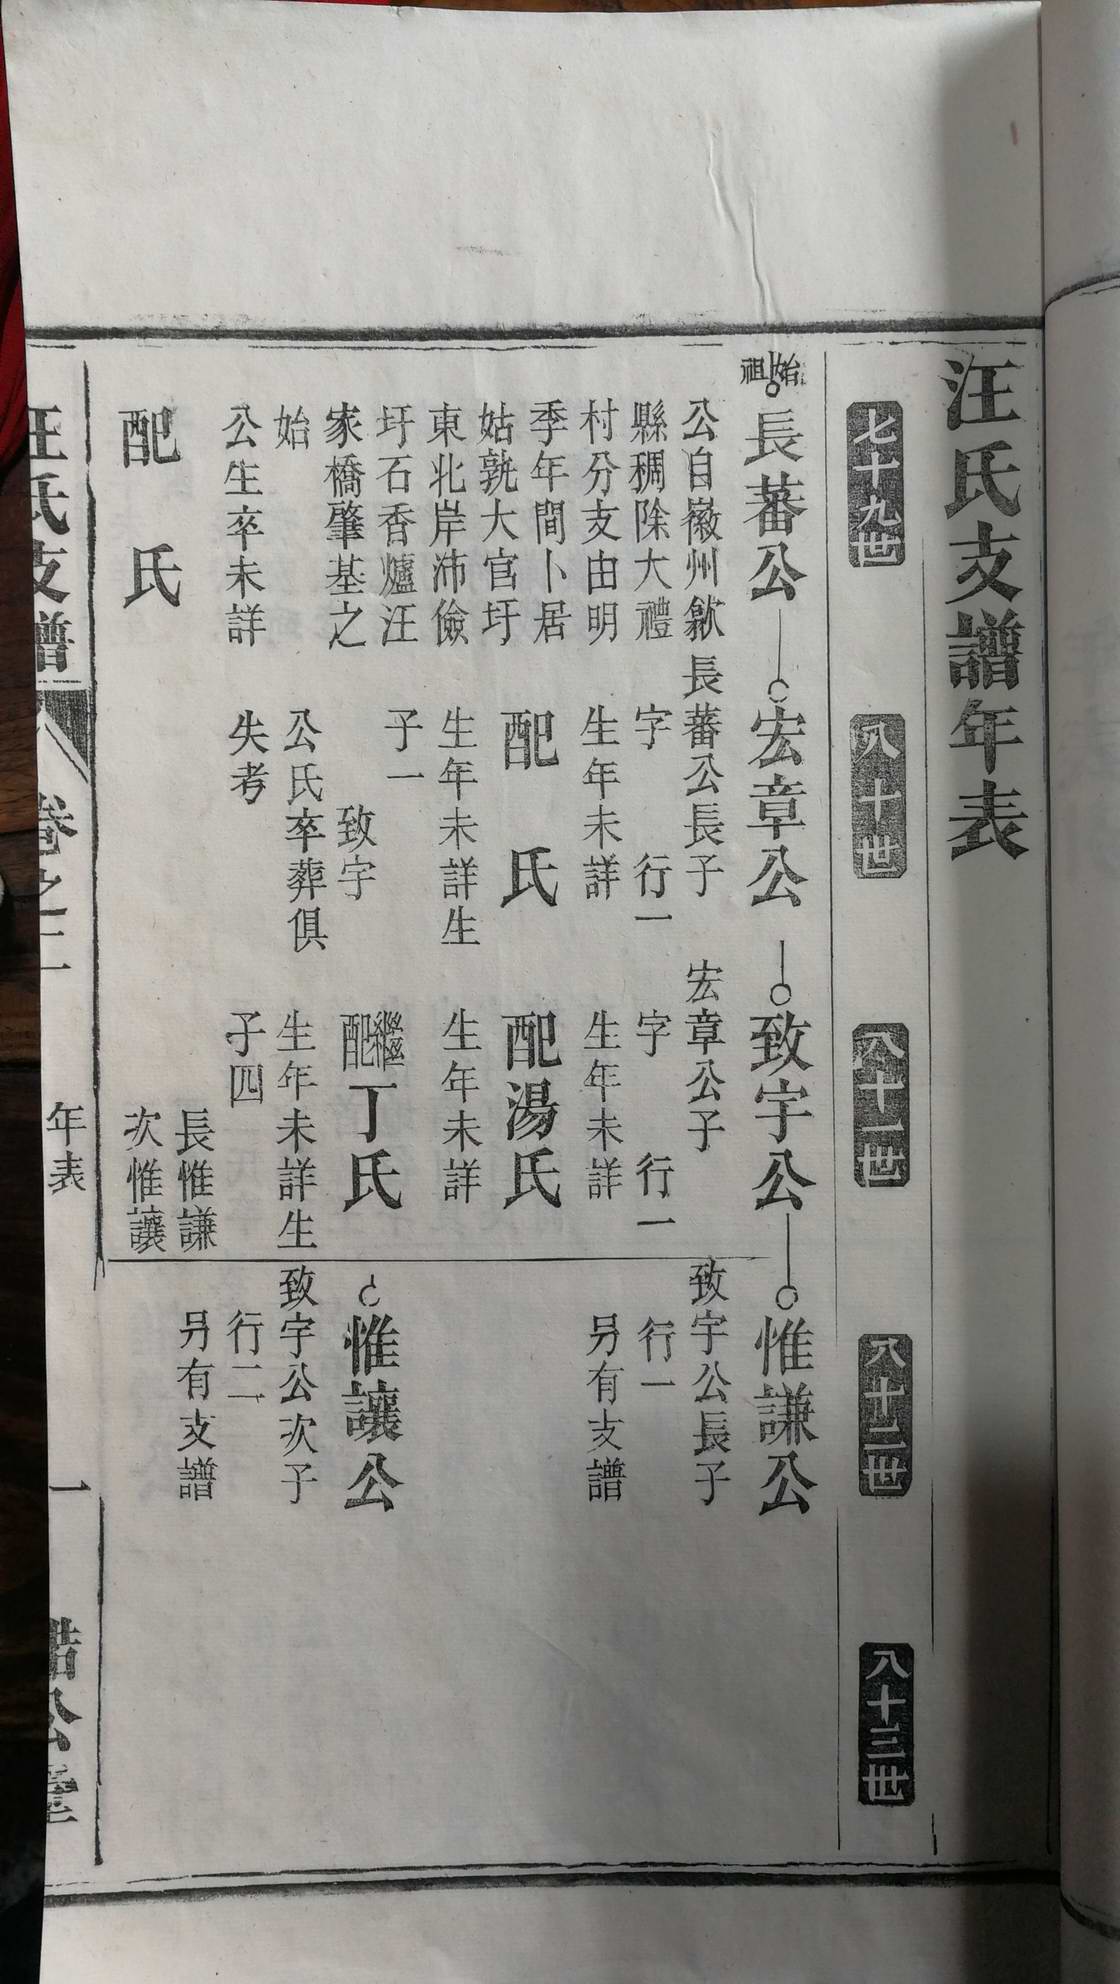 汪氏支譜年表
七十九世
八十世
八十一世
八十二世
八十三世
始祖
長蕃公
公自徽州歙
縣稠除大禮
村分支由明
季年間卜居
姑孰大官圩
東北岸沛儉
圩石香爐汪
家橋肇基之
始
公生卒未詳
配 氏
宏章公
長蕃公長子
字 行一
生年未詳
配 氏
生年未詳生
子一
致宇
公氏卒葬俱
失考
致宇公
宏章公子
字 行一
生年未詳
配湯氏
生年未詳
繼配丁氏
生年未詳生
子四
長惟謙
次惟讓
惟謙公
致宇公長子
行一
另有支譜
惟讓公
致宇公次子
行二
另有支譜
汪氏支譜
卷之二
年表
一